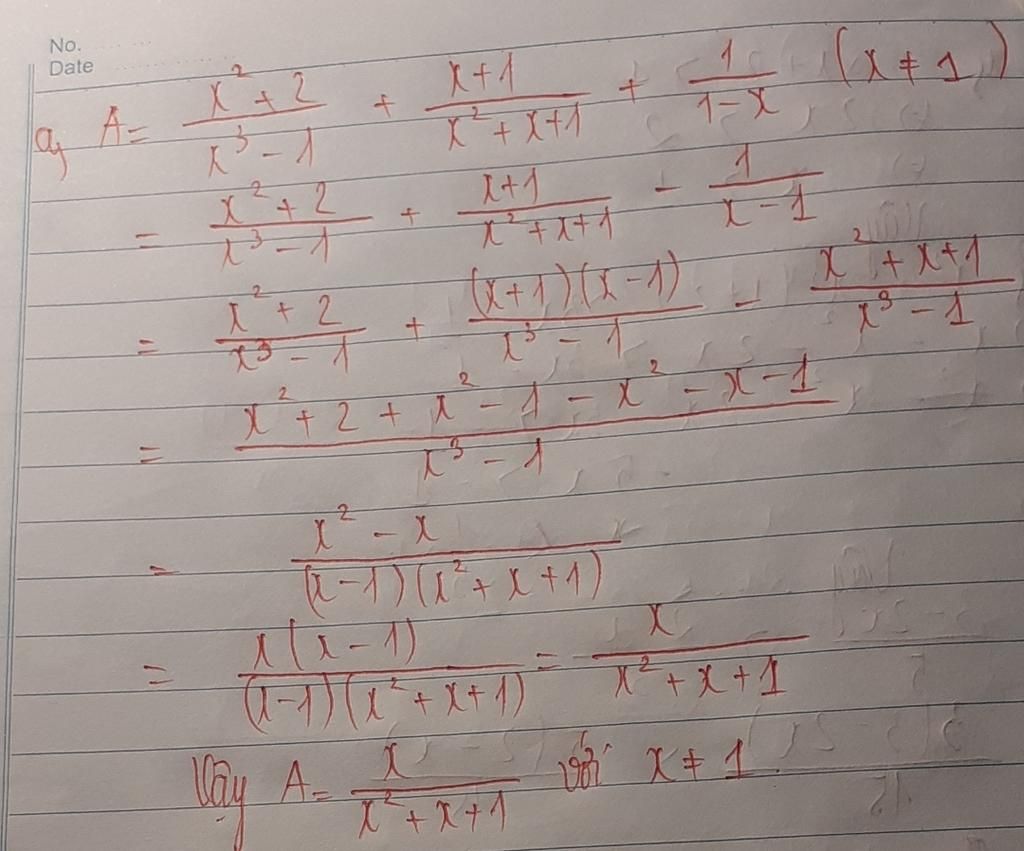 No.
Date
a, A = \frac{x^2+2}{x^3-1} + \frac{x+1}{x^2+x+1} + \frac{1}{1-x} (x ≠ 1)
= \frac{x^2+2}{x^3-1} + \frac{x+1}{x^2+x+1} - \frac{1}{x-1}
= \frac{x^2+2}{x^3-1} + \frac{(x+1)(x-1)}{x^3-1} - \frac{x^2+x+1}{x^3-1}
= \frac{x^2+2+x^2-1-x^2-x-1}{x^3-1}
= \frac{x^2-x}{(x-1)(x^2+x+1)}
= \frac{x(x-1)}{(x-1)(x^2+x+1)} = \frac{x}{x^2+x+1}
Vậy A = \frac{x}{x^2+x+1} với x ≠ 1